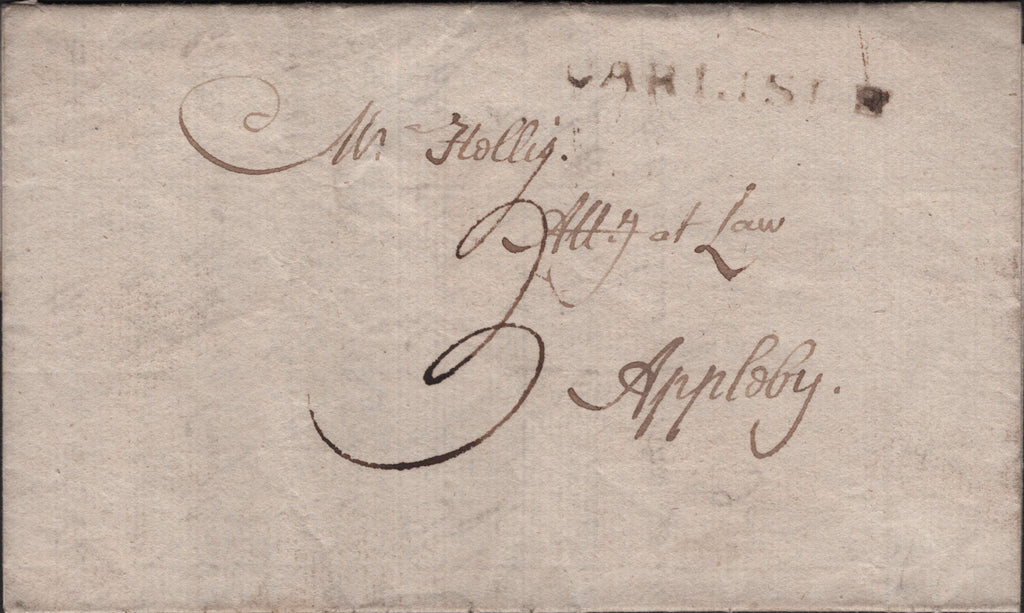 CARLISLE
Mr. Hollig.
Atty at Law
3
Appleby.